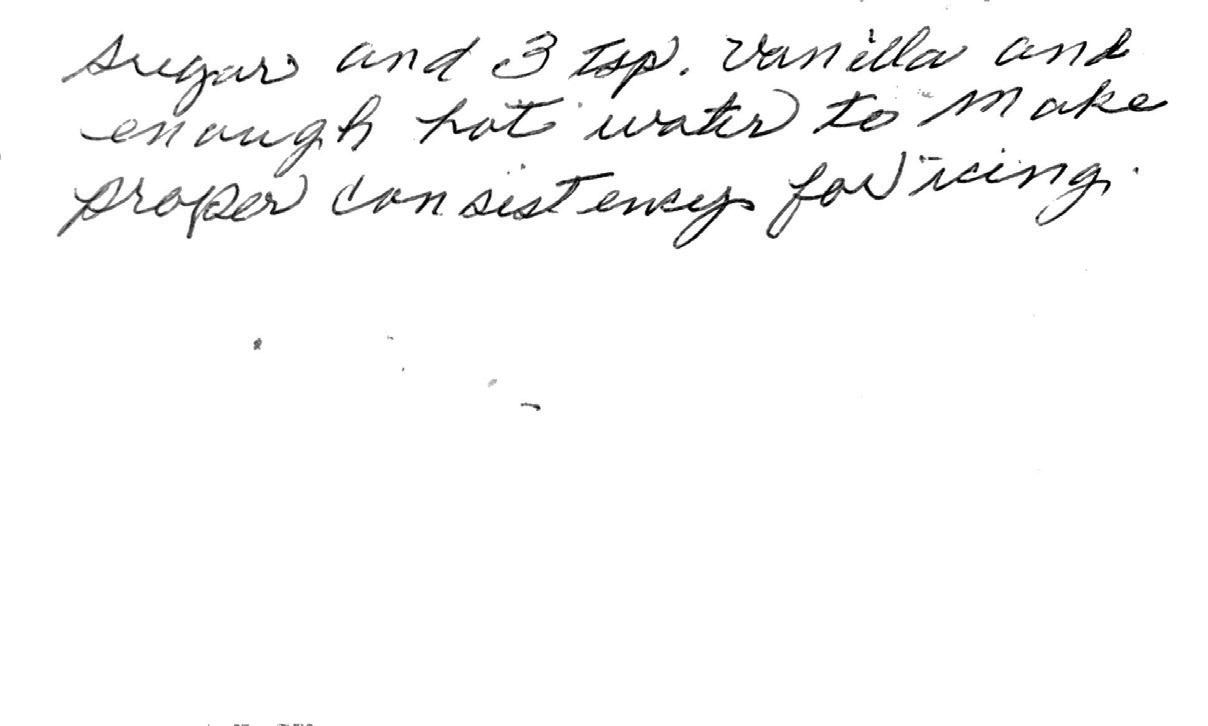 sugar and 3 tsp. vanilla and
enough hot water to make
proper consistency for icing.